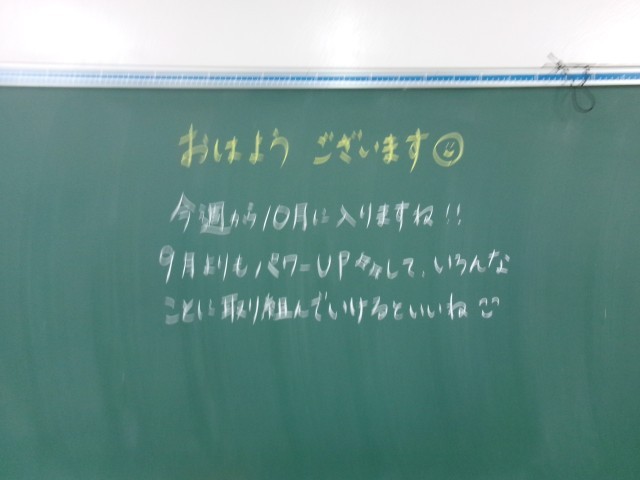 おはよう ございます
今週から10月に入りますね!!
9月よりもパワーUPして、いろんな
ことに取り組んでいけるといいね